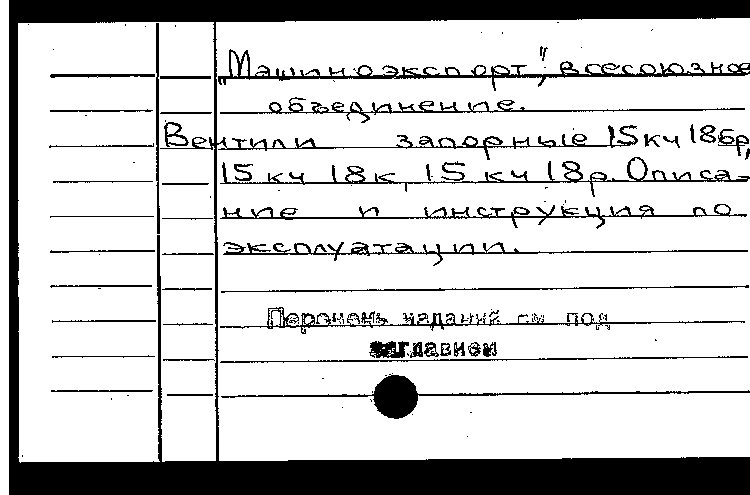 „Машиноэкспорт", всесоюзное
объединение.
Вентили запорные 15кч 18бр,
15 кч 18к, 15 кч 18р. Описа-
ние и инструкция по
эксплуатации.
Перечень изданий см под
заглавием